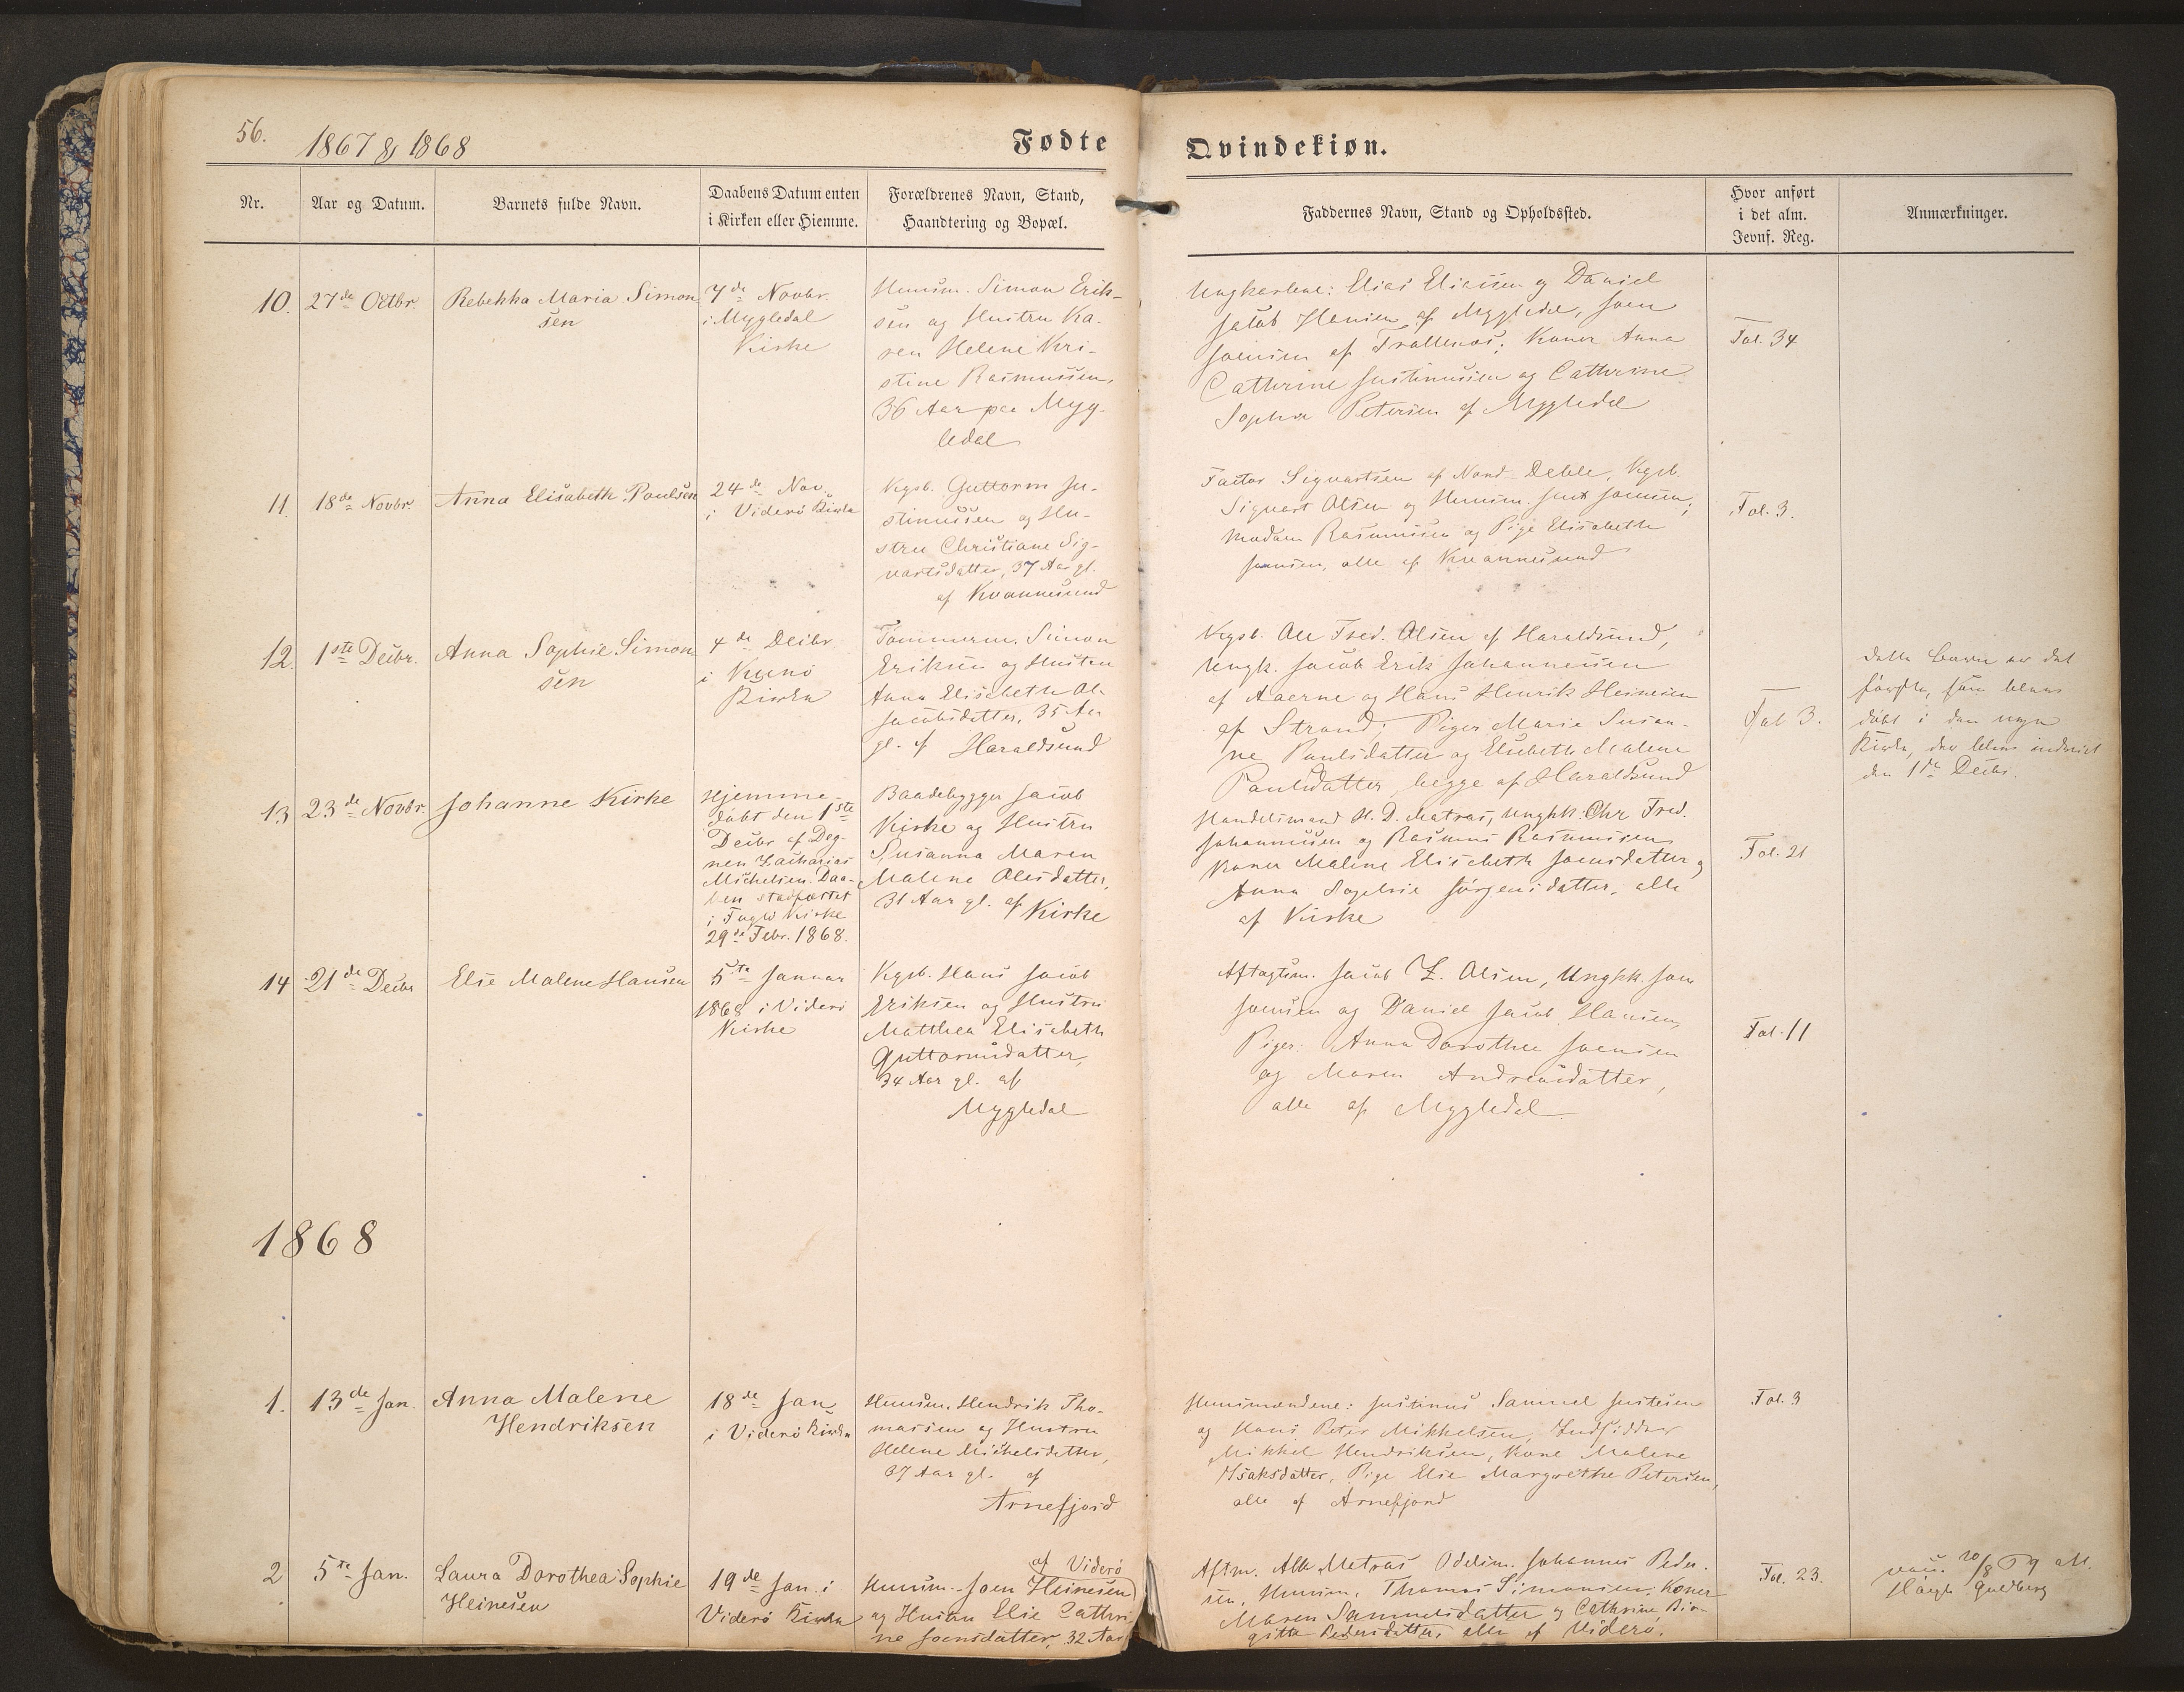 56.
1867 & 1868
Fødte
Qvindekiøn.
Nr.
Aar og Datum.
Barnets fulde Navn.
Daabens Datum enten
i Kirken eller Hiemme.
Forældrenes Navn, Stand,
Haandtering og Bopæl.
Faddernes Navn, Stand og Opholdssted.
Hvor anført
i det alm.
Jevnf. Reg.
Anmærkninger.
10.
27de Octbr.
Rebekka Maria Simon
sen
7de Novbr.
i Mygledal
Kirke
Huusm. Simon Erik-
sen og Hustru Ka-
ren Helene Kri-
stine Rasmussen,
36 Aar paa Myg-
ledal
Ungkarlene: Elias Eliasen og Daniel
Jacob Hansen af Mygledal, Joen
Joensen af Trollenæs; Koner Anna
Cathrine Justinussen og Cathrine
Sophia Petersen af Mygledal
Fol. 34
11.
18de Novbr.
Anna Elisabeth Poulsen
24de Nov.
i Viderö Kirke
Kgsb. Guttorm Ju-
stinussen og Hu-
stru Christiane Sig-
vartsdatter, 37 Aar gl.
af Kvannesund
Factor Sigvartsen af Nord Deble, Kgsb.
Sigvart Olsen og Huusm. Joensen;
Madam Rasmussen og Pige Elisabeth
Joensen, alle af Kvannesund
Fol. 3.
12.
1ste Decbr.
Anna Sophie Simon-
sen
4de Decbr.
i Kunö
Kirke
Tömmerm. Simon
Eriksen og Hustru
Anna Elisabeth
Jacobsdatter, 35 Aar
gl. af Haraldsund
Kgsb. Ole Fred. Olsen af Haraldsund,
Ungk. Jacob Erik Johannessen
af Aaerne og Hans Henrik Heinesen
af Strand; Piger Marie Susan-
ne Paulsdatter og Elsebeth Malene
Paulsdatter, begge af Haraldsund
Fol 3.
dette Barn er det
første, som blev
døbt i den nye
Kirke, der blev indviet
den 1ste Decbr.
13
23de Novbr.
Johanne Kirke
Hjemme-
døbt den 1ste
Decbr af Deg-
nen Zacharias
Michelsen. Daa-
ben stadfæstet
i Fuglö Kirke
29de Febr. 1868.
Baadebygger Jacob
Kirke og Hustru
Susanna Maren
Malene Olesdatter,
31 Aar gl. af Kirke
Handelsmand H. D. Matras, Ungk. Chr Fred.
Johannessen og Rasmus Rasmussen
Koner Malene Elisabeth Joensdatter og
Anna Sophie Jörgensdatter, alle
af Kirke
Fol. 21
14
21de Decbr
Else Malene Hansen
5te Januar
1868 i Viderö
Kirke
Kgsb. Hans Jacob
Eriksen og Hustru
Matthea Elisabeth
Guttormsdatter,
34 Aar gl. af
Mygledal
Aftægtsm. Jacob Z. Olsen, Ungk. Joen
Joensen og Daniel Jacob Hansen,
Piger: Anna Dorothea Joensen
og Maren Andreasdatter,
alle af Mygledal
Fol. 11
1868
1.
13de Jan.
Anna Malene
Hendriksen
18de Jan
i Viderö Kirke
Huusm. Hendrik Tho-
massen og Hustru
Helene Michelsdatter,
37 Aar gl. af
Arnefjord
Huusmændene: Justinus Samuel Justesen
og Hans Peter Mikkelsen, Indsidder
Mikkel Hendriksen, Kone Malene
Isaksdatter, Pige Else Margrethe Petersen,
alle af Arnefjord
Fol. 3
2
5te Jan.
Laura Dorothea Sophie
Heinesen
19de Jan. i
Viderö Kirke
af Viderö
Huusm. Joen Heinesen
og Hustru Else Cathri-
ne Joensdatter, 32 Aar
Aftm. Matras Odelsm. Johannes Peder-
sen, Huusm. Thomas Simonsen; Koner
Maren Samuelsdatter og Cathrine Bir-
gitte Pedersdatter, alle af Viderö.
Fol. 23.